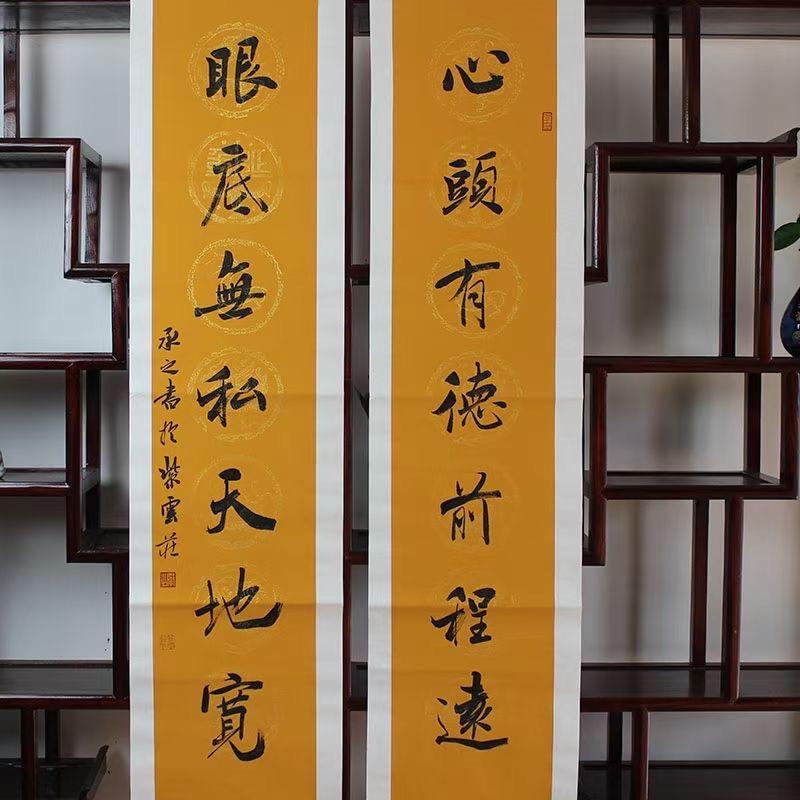 心頭有德前程遠
眼底無私天地寬
承之書於紫雲莊